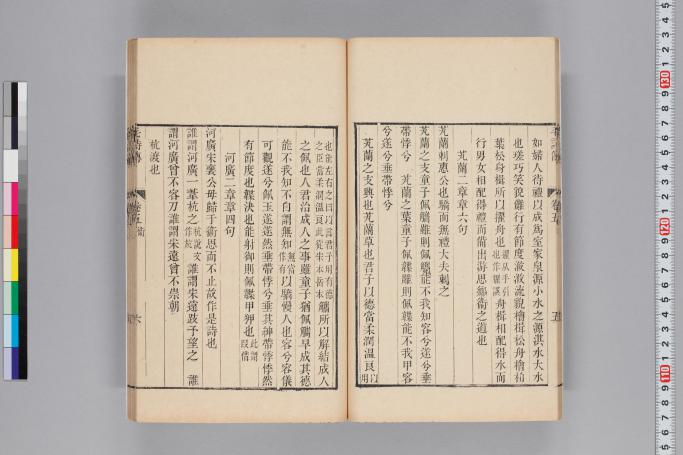 如婦人待禮以成爲室家泉源小水之源淇水大水
也瑳巧笑貌儺行有節度滺滺流貌檜楫松舟檜柏
葉松身楫所以擢舟也舟楫相配得水而
行男女相配得禮而備出遊思鄉衛之道也
芄蘭二章章六句
芄蘭刺惠公也驕而無禮大夫刺之
芄蘭之支童子佩觿雖則佩觿能不我知容兮遂兮垂
帶悸兮 芄蘭之葉童子佩韘雖則佩韘能不我甲容
兮遂兮垂帶悸兮
芄蘭之支興也芄蘭草也君子以德當柔潤溫良
觿所以解結成人
之佩也人君治成人之事雖童子猶佩觿早成其德
能不我知不自謂無知以驕慢人也容兮容儀
可觀遂兮佩玉遂遂然垂帶悸兮垂其紳帶悸悸然
有節度也韘決也能射御則佩韘甲狎也
河廣二章章四句
河廣宋襄公母歸于衛思而不止故作是詩也
誰謂河廣一葦杭之 誰謂宋遠跂予望之 誰
謂河廣曾不容刀誰謂宋遠曾不崇朝
杭渡也
卷五
五
六